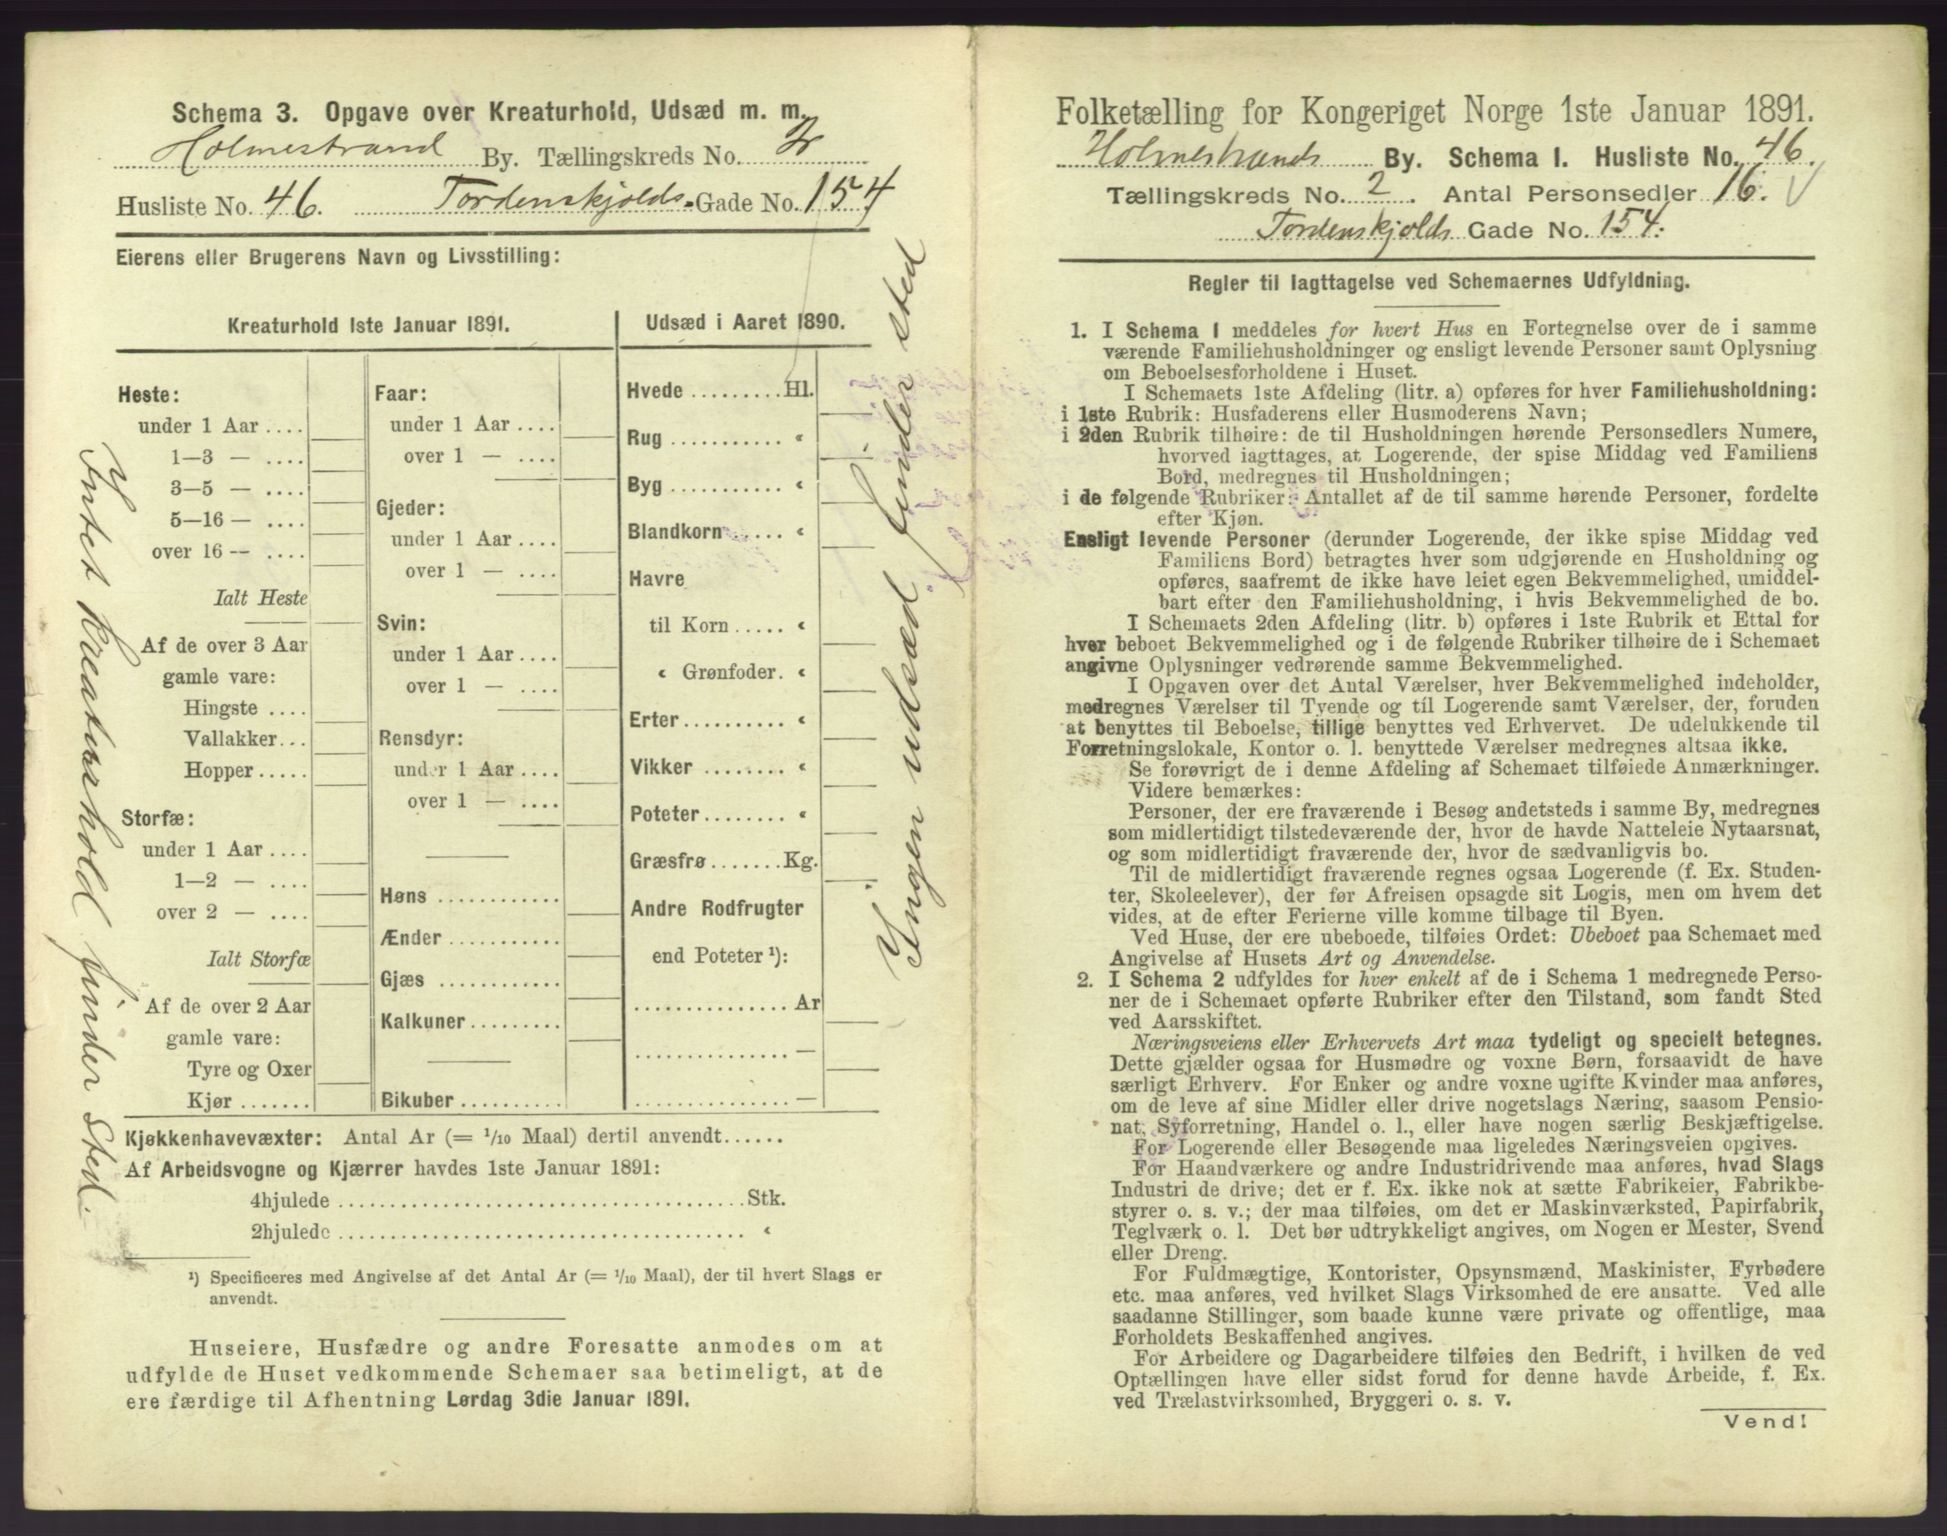 Schema 3. Opgave over Kreaturhold, Udsæd m. m.
Holmestrand By. Tællingskreds No. 2
Husliste No. 46. Tordenskjolds Gade No. 154
Eierens eller Brugerens Navn og Livsstilling:
Kreaturhold 1ste Januar 1891.
Heste:
under 1 Aar ....
1—3 — ....
3—5 — ....
5—16 — ....
over 16 — ....
Ialt Heste
Af de over 3 Aar
gamle vare:
Hingste ....
Vallakker...
Hopper.....
Storfæ:
under 1 Aar ....
1—2 — ....
over 2 — ....
Ialt Storfæ
Af de over 2 Aar
gamle vare:
Tyre og Oxer
Kjør .......
Faar:
under 1 Aar ....
over 1 — ....
Gjeder:
under 1 Aar ....
over 1 — ....
Svin:
under 1 Aar ....
over 1 — ....
Rensdyr:
under 1 Aar ....
over 1 — ....
Høns ............
Ænder ...........
Gjæs ............
Kalkuner.........
Bikuber..........
Udsæd i Aaret 1890.
Hvede .........Hl.
Rug ........... «
Byg ........... «
Blandkorn ..... «
Havre
til Korn ..... «
« Grønfoder. «
Erter .......... «
Vikker ........ «
Poteter ........ «
Græsfrø.......Kg.
Andre Rodfrugter
end Poteter ¹):
............... Ar
............... —
............... —
Intet Kreaturhold finder Sted.
Ingen udsæd finder sted
Kjøkkenhavevæxter: Antal Ar (= 1/10 Maal) dertil anvendt......
Af Arbeidsvogne og Kjærrer havdes 1ste Januar 1891:
4hjulede ....................................Stk.
2hjulede .................................... «
¹) Specificeres med Angivelse af det Antal Ar (= 1/10 Maal), der til hvert Slags er
anvendt.
Huseiere, Husfædre og andre Foresatte anmodes om at
udfylde de Huset vedkommende Schemaer saa betimeligt, at de
ere færdige til Afhentning Lørdag 3die Januar 1891.
Folketælling for Kongeriget Norge 1ste Januar 1891.
Holmestrands By. Schema 1. Husliste No. 46.
Tællingskreds No. 2. Antal Personsedler 16.
Tordenskjolds Gade No. 154.
Regler til Iagttagelse ved Schemaernes Udfyldning.
1. I Schema 1 meddeles for hvert Hus en Fortegnelse over de i samme
værende Familiehusholdninger og ensligt levende Personer samt Oplysning
om Beboelsesforholdene i Huset.
I Schemaets 1ste Afdeling (litr. a) opføres for hver Familiehusholdning:
i 1ste Rubrik: Husfaderens eller Husmoderens Navn;
i 2den Rubrik tilhøire: de til Husholdningen hørende Personsedlers Numere,
hvorved iagttages, at Logerende, der spise Middag ved Familiens
Bord, medregnes til Husholdningen;
i de følgende Rubriker: Antallet af de til samme hørende Personer, fordelte
efter Kjøn.
Ensligt levende Personer (derunder Logerende, der ikke spise Middag ved
Familiens Bord) betragtes hver som udgjørende en Husholdning og
opføres, saafremt de ikke have leiet egen Bekvemmelighed, umiddel-
bart efter den Familiehusholdning, i hvis Bekvemmelighed de bo.
I Schemaets 2den Afdeling (litr. b) opføres i 1ste Rubrik et Ettal for
hver beboet Bekvemmelighed og i de følgende Rubriker tilhøire de i Schemaet
angivne Oplysninger vedrørende samme Bekvemmelighed.
I Opgaven over det Antal Værelser, hver Bekvemmelighed indeholder,
medregnes Værelser til Tyende og til Logerende samt Værelser, der, foruden
at benyttes til Beboelse, tillige benyttes ved Erhvervet. De udelukkende til
Forretningslokale, Kontor o. l. benyttede Værelser medregnes altsaa ikke.
Se forøvrigt de i denne Afdeling af Schemaet tilføiede Anmærkninger.
Videre bemærkes:
Personer, der ere fraværende i Besøg andetsteds i samme By, medregnes
som midlertidigt tilstedeværende der, hvor de havde Natteleie Nytaarsnat,
og som midlertidigt fraværende der, hvor de sædvanligvis bo.
Til de midlertidigt fraværende regnes ogsaa Logerende (f. Ex. Studen-
ter, Skoleelever), der før Afreisen opsagde sit Logis, men om hvem det
vides, at de efter Ferierne ville komme tilbage til Byen.
Ved Huse, der ere ubeboede, tilføies Ordet: Ubeboet paa Schemaet med
Angivelse af Husets Art og Anvendelse.
2. I Schema 2 udfyldes for hver enkelt af de i Schema 1 medregnede Perso-
ner de i Schemaet opførte Rubriker efter den Tilstand, som fandt Sted
ved Aarsskiftet.
Næringsveiens eller Erhvervets Art maa tydeligt og specielt betegnes.
Dette gjælder ogsaa for Husmødre og voxne Børn, forsaavidt de have
særligt Erhverv. For Enker og andre voxne ugifte Kvinder maa anføres,
om de leve af sine Midler eller drive nogetslags Næring, saasom Pensio-
nat, Syforretning, Handel o. l., eller have nogen særlig Beskjæftigelse.
For Logerende eller Besøgende maa ligeledes Næringsveien opgives.
For Haandværkere og andre Industridrivende maa anføres, hvad Slags
Industri de drive; det er f. Ex. ikke nok at sætte Fabrikeier, Fabrikbe-
styrer o. s. v.; der maa tilføies, om det er Maskinværksted, Papirfabrik,
Teglværk o. l. Det bør udtrykkeligt angives, om Nogen er Mester, Svend
eller Dreng.
For Fuldmægtige, Kontorister, Opsynsmænd, Maskinister, Fyrbødere
etc. maa anføres, ved hvilket Slags Virksomhed de ere ansatte. Ved alle
saadanne Stillinger, som baade kunne være private og offentlige, maa
Forholdets Beskaffenhed angives.
For Arbeidere og Dagarbeidere tilføies den Bedrift, i hvilken de ved
Optællingen have eller sidst forud for denne havde Arbeide, f. Ex.
ved Trælastvirksomhed, Bryggeri o. s. v.
Vend!